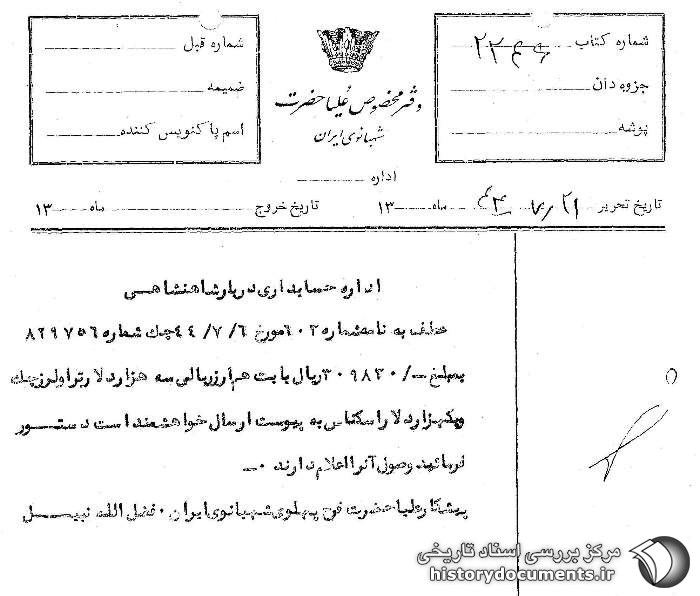 شماره کتاب
جزوه دان
پوشه
دفتر مخصوص علیاحضرت
شهبانوی ایران
اداره
شماره قبل
ضمیمه
اسم پاکنویس کننده
تاریخ تحریر ۲۱ /۷ /۴۴ ماه ۱۳
تاریخ خروج ماه ۱۳
اداره حسابداری دربار شاهنشاهی
عطف به نامه شماره ۶۰۲ مورخ ۴۴/۷/۶ چک شماره ۸۲۹۷۵۶
بمبلغ -/۳۰۹۸۲۰ ریال بابت هم ارز ریالی سه هزار دلار تراولرز چک
ویکهزار دلار اسکناس به پیوست ارسال خواهشمند است دستور
فرمائید وصول آنرا اعلام دارند ۰-
پیشکار علیاحضرت فرح پهلوی شهبانوی ایران ۰ فضل الله نبیل
مرکز بررسی اسناد تاریخی
historydocuments.ir